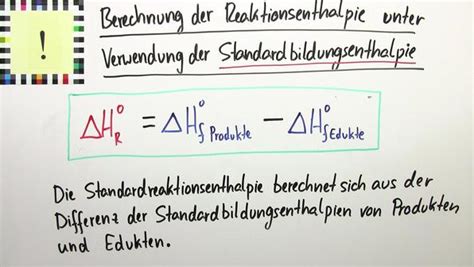 !
Berechnung der Reaktionsenthalpie unter
Verwendung der Standardbildungsenthalpie
ΔH°R = ΔH°f Produkte − ΔH°f Edukte
Die Standardreaktionsenthalpie berechnet sich aus der
Differenz der Standardbildungsenthalpien von Produkten
und Edukten.